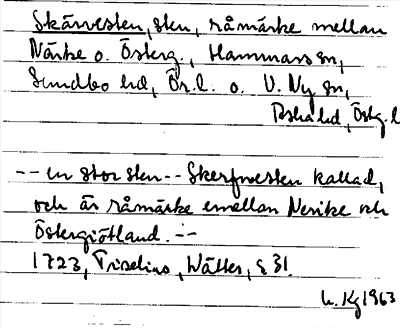 Skärvesten, sten, råmärke mellan
Närke o. Österg., Hammars sn,
Sundbo hd, Ör.l. o. V. Ny sn,
Aska hd, Östg.l
-- en stor sten -- Skerfwesten kallad,
och är råmärke emellan Nerike och
Östergiötland. --
1723, Tiselius, Wätter, s 31.
Kg 1963